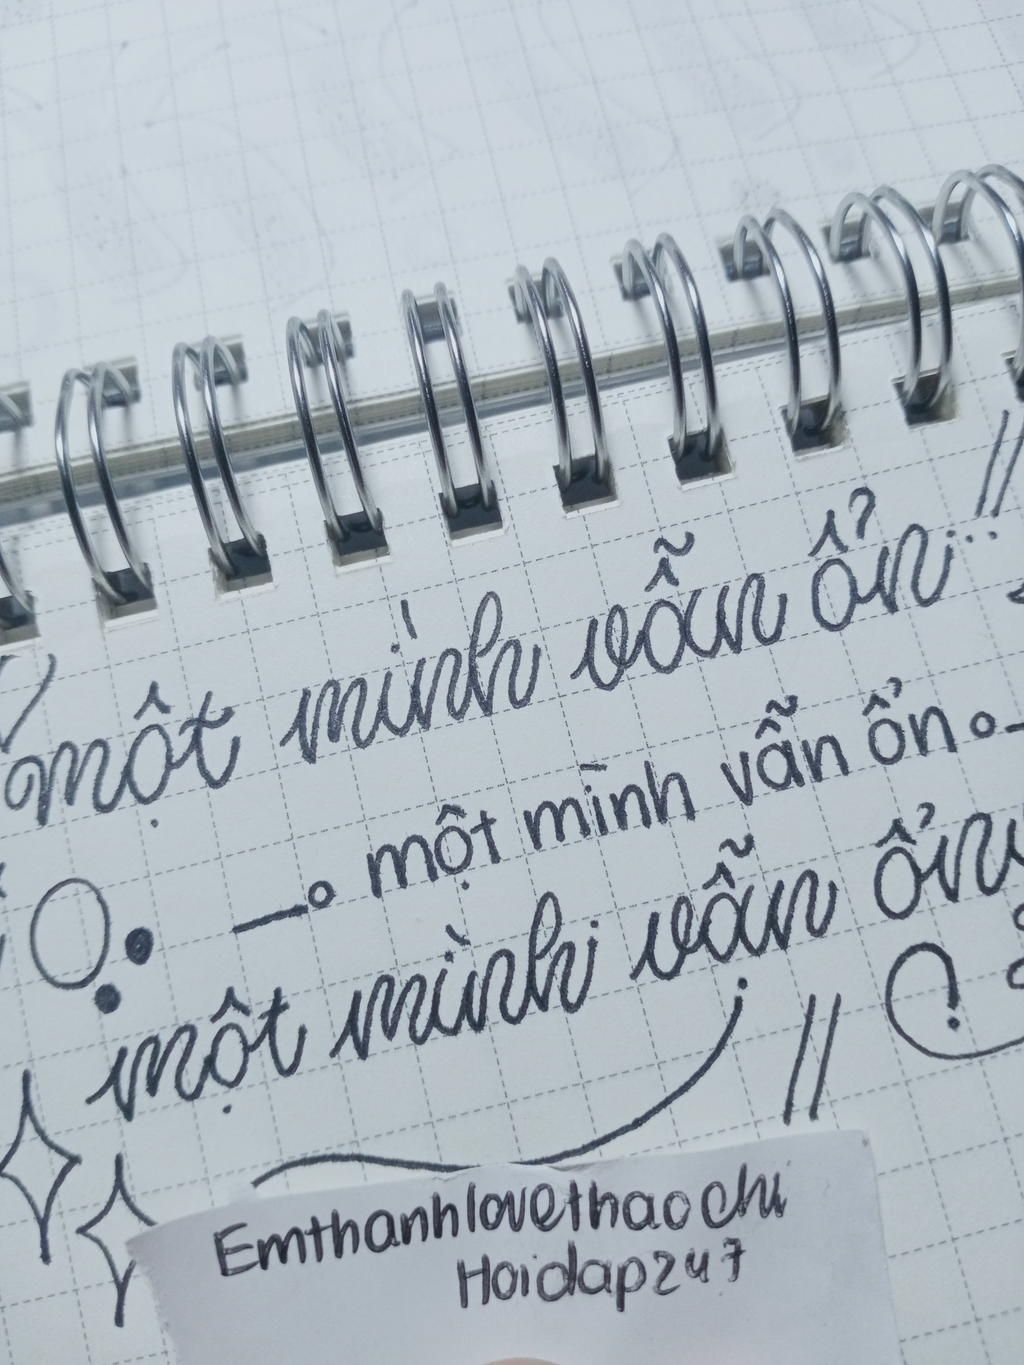 một mình vẫn ổn...
một mình vẫn ổn
một mình vẫn ổn
Emthanhlovethaochi
Hoidap247